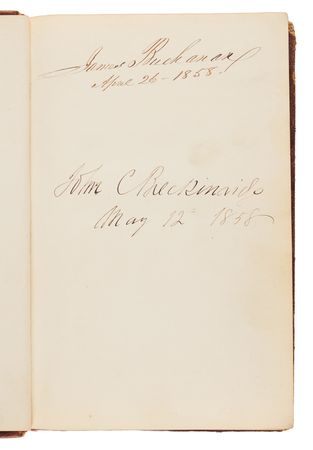 James Buchanan
April 26 - 1858.
John C Breckinridge
May 12 1858